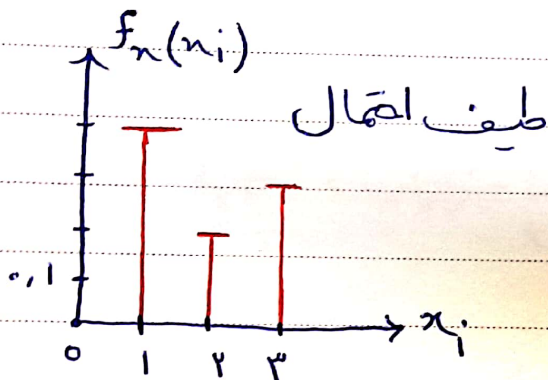 fₙ(nᵢ)
طیف احتمال
۰٫۱
xᵢ
۰ ۱ ۲ ۳